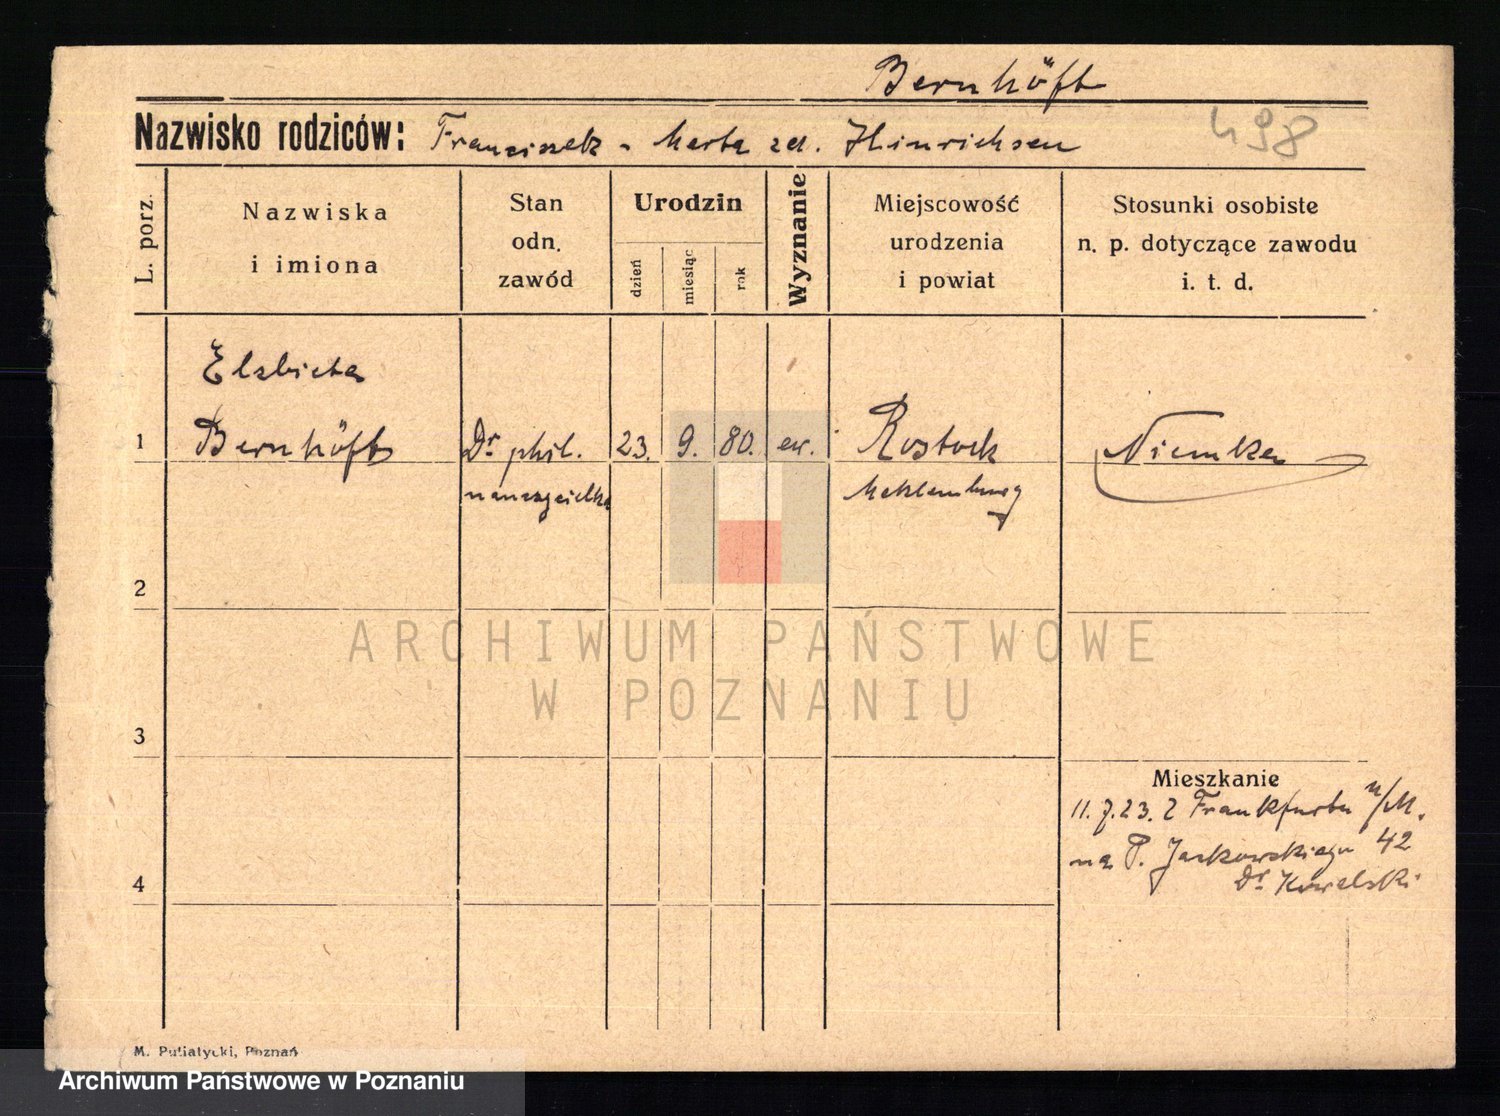 Bernhöft
498
Nazwisko rodziców: Franciszek - Marta zd. Hinrichsen
L. porz.
Nazwiska
i imiona
Stan
odn.
zawód
Urodzin
dzień
miesiąc
rok
Wyznanie
Miejscowość
urodzenia
i powiat
Stosunki osobiste
n. p. dotyczące zawodu
i. t. d.
Elzbieta
1 Bernhöft Dr phil. 23. 9. 80. ew. Rostock Niemka
nauczycielka Meklemburg
2
ARCHIWUM PAŃSTWOWE
W POZNANIU
3
Mieszkanie
11.7.23. Z Frankfurtu n/M.
na P. Jackowskiego 42
4
Dr Kowalski
M. Putiatycki, Poznań
Archiwum Państwowe w Poznaniu